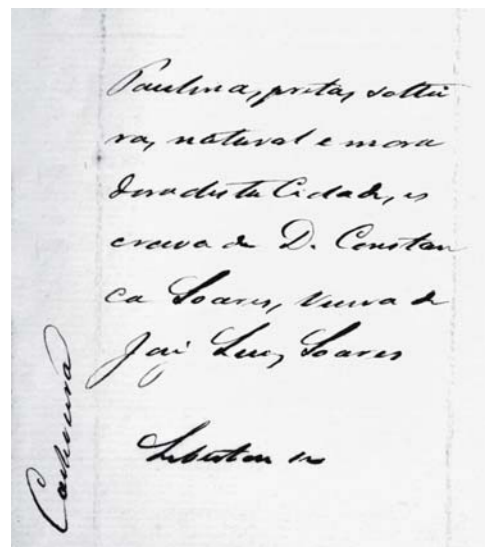 Paulina, preta, soltei
ra, natural e mora
dora desta Cidade, es
crava de D. Constan
ça Soares, viuva de
José Luiz Soares
Libertou se
Cachoeira